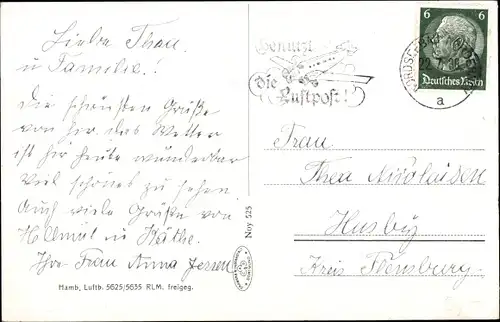 Liebe Thea.
u Familie!
Die schönsten Grüße
von her das Wetter
ist hir heute wunderbar
Viel schönes zu sehen
Auch viele Grüße von
Hellmut u Käthe.
Ihre Frau Anna Jessen
Hamb. Luftb. 5625/5635 RLM. freigeg.
Noy 525
Benutzt
die
Luftpost!
6 6
Deutsches Reich
NORDSEEBAD
a
Frau
Thea Nikolaisen
Husby
Kreis Flensburg.